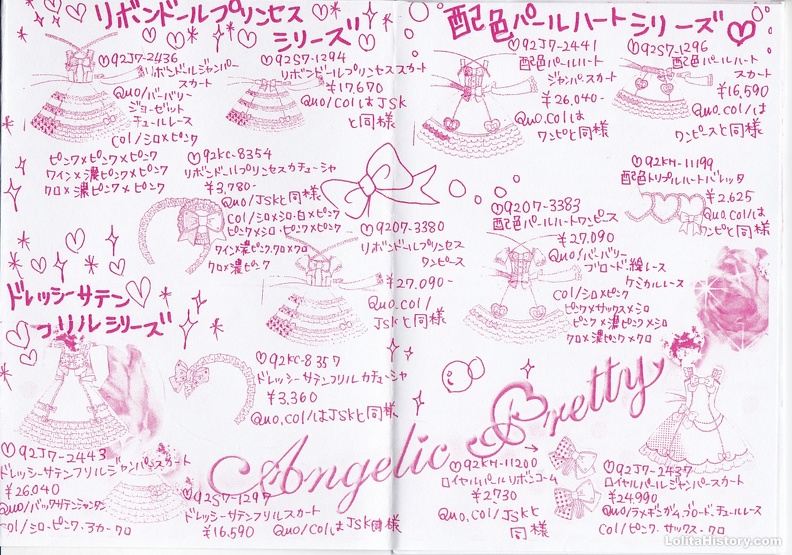 リボンドールプリンセス
シリーズ
♡92J7-2436
リボンドールジャンパー
スカート
Quo/バーバリー
ジョーゼット
チュールレース
Col/シロ×ピンク
ピンク×ピンク×ピンク
ワイン×濃ピンク×ピンク
クロ×濃ピンク×ピンク
♡92S7-1294
リボンドールプリンセススカート
¥17,670
Quo/colはJSK
と同様
♡92KC-8354
リボンドールプリンセスカチューシャ
¥3,780-
Quo/JSKと同様
Col/シロ×シロ・白×ピンク
ピンク×シロ・ピンク×ピンク
ワイン×濃ピンク・クロ×クロ
クロ×濃ピンク
♡9207-3380
リボンドールプリンセス
ワンピース
¥27,090-
Quo,col/
JSKと同様
ドレッシーサテン
フリルシリーズ
♡92KC-8357
ドレッシーサテンフリルカチューシャ
¥3,360
Quo,col/はJSKと同様
♡92J7-2443
ドレッシーサテンフリルジャンパースカート
¥26,040
Quo/バックサテンシャンタン
Col/シロ・ピンク・クロ
♡92S7-1297
ドレッシーサテンフリルスカート
¥16,590
Quo/ColはJSK同様
配色パールハートシリーズ♡
♡92J7-2441
配色パールハート
ジャンパスカート
¥26,040-
Quo,Col/は
ワンピと同様
♡92S7-1296
配色パールハート
スカート
¥16,590
Quo,Col/は
ワンピースと同様
♡92KH-11199
配色トリプルハートバレッタ
¥2,625
Quo,Colは
ワンピと同様
♡9207-3383
配色パールハートワンピース
¥27,090
Quo/バーバリー
ブロード・絵レース
ケミカルレース
Col/シロ×ピンク
ピンク×サックス×シロ
ピンク×濃ピンク×シロ
クロ×濃ピンク×クロ
Angelic Pretty
♡92KH-11200
ロイヤルパールリボンコーム
¥2730
Quo,Col/JSKと
同様
♡92J7-2437
ロイヤルパールジャンパースカート
¥24,990
Quo/ラメギンガム,ブロード,チュールレース
Col/ピンク・サックス・クロ
LolitaHistory.com